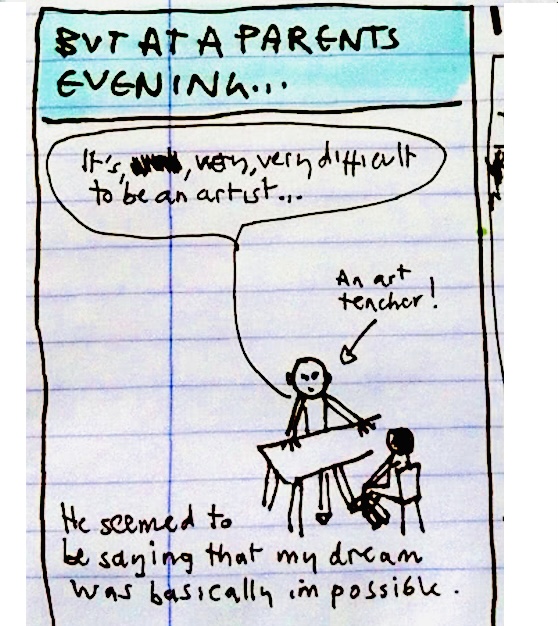 BUT AT A PARENTS
EVENING...
It's, , very, very difficult
to be an artist...
An art
teacher!
He seemed to
be saying that my dream
was basically impossible.